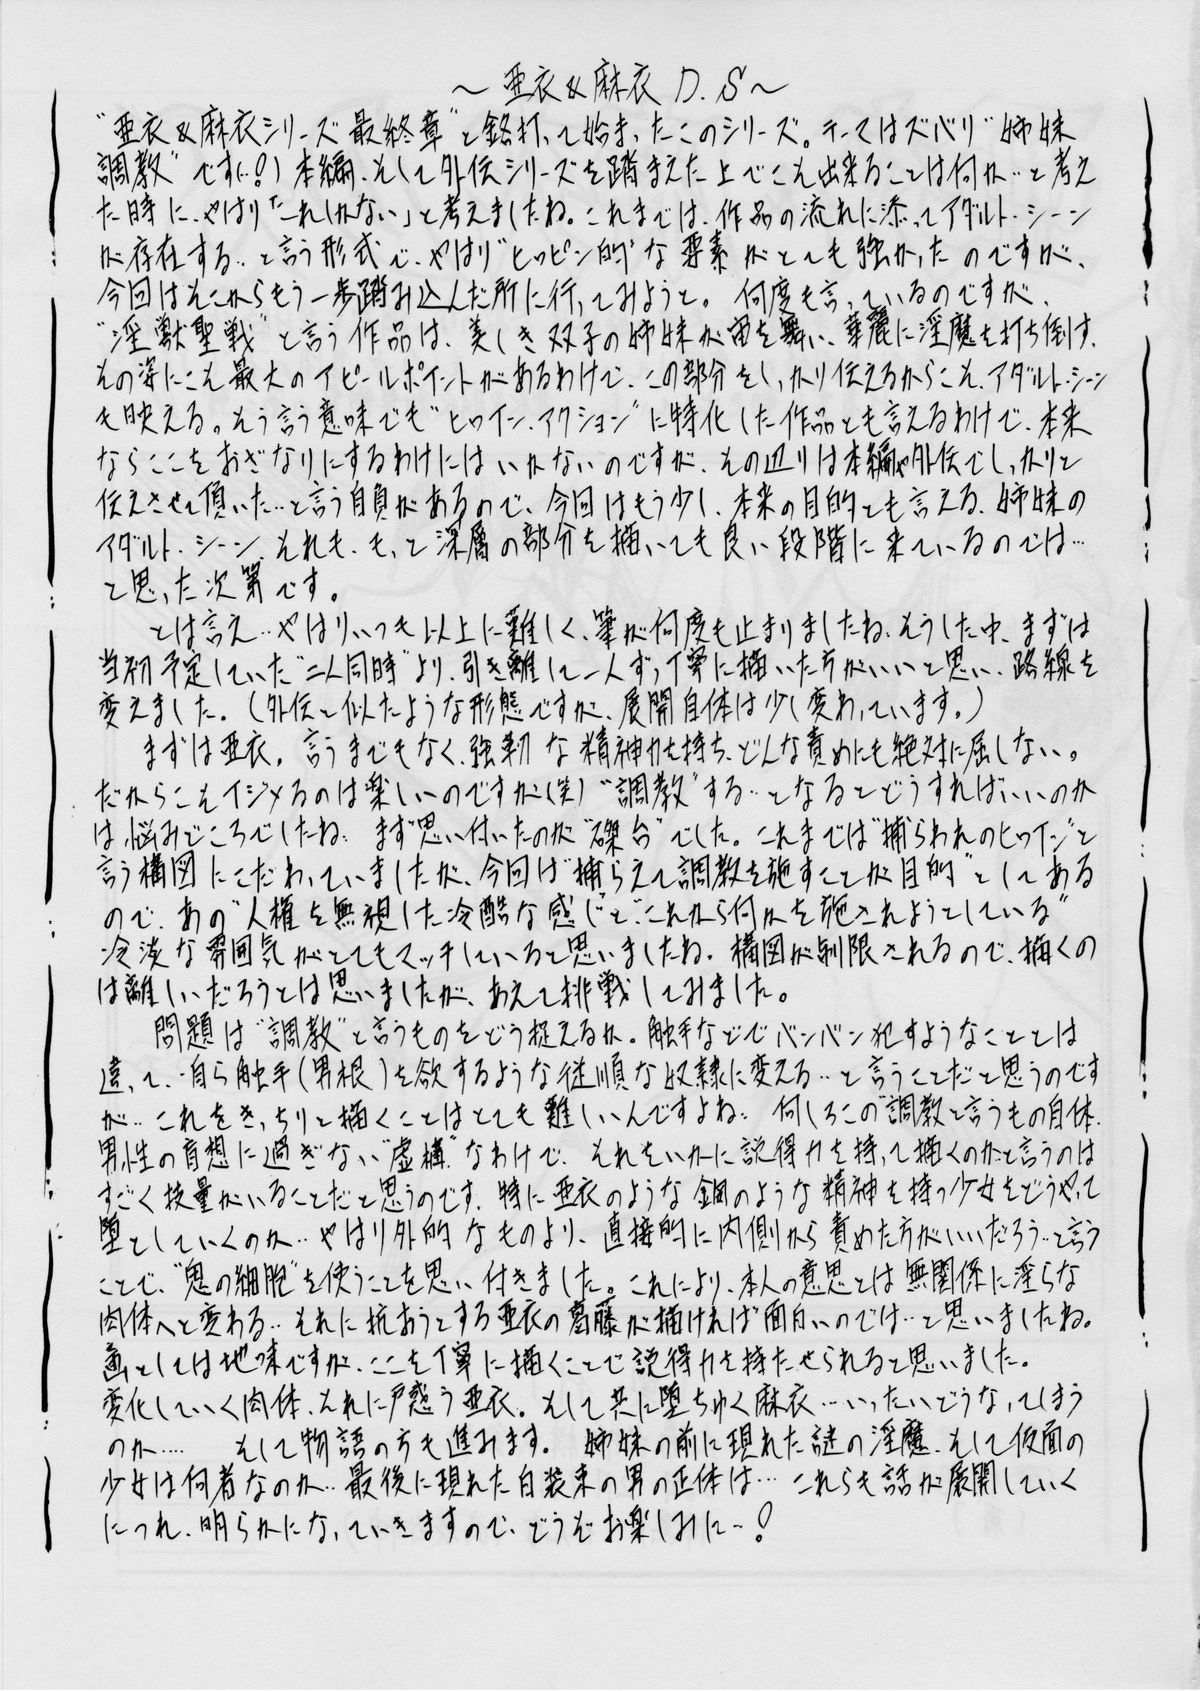 ～亜衣&麻衣 D.S～
“亜衣&麻衣シリーズ最終章”と銘打って始まったこのシリーズ。テーマはズバリ“姉妹
調教”です(…!)本編、そして外伝シリーズを踏まえた上でこそ出来ることは何か…と考え
た時に、やはり「これしかない」と考えましたね。これまでは、作品の流れに添ってアダルト・シーン
が存在する…と言う形式で、やはり“ヒロピン的”な要素がとても強かったのですが、
今回はそこからもう一歩踏み込んだ所に行ってみようと。何度も言っているのですが、
“淫獣聖戦”と言う作品は、美しき双子の姉妹が宙を舞い、華麗に淫魔を打ち倒す、
その姿にこそ最大のアピールポイントがあるわけで、この部分をしっかり伝えるからこそ、アダルト・シーン
も映える。そう言う意味でも“ヒロイン・アクション”に特化した作品とも言えるわけで、本来
ならここをおざなりにするわけにはいかないのですが、その辺りは本編や外伝でしっかりと
伝えさせて頂いた…と言う自負があるので、今回はもう少し、本来の目的とも言える、姉妹の
アダルト・シーン、それも、もっと深層の部分を描いても良い段階に来ているのでは…
と思った次第です。
とは言え…やはりいつも以上に難しく、筆が何度も止まりましたね。そうした中、まずは
当初予定していた“二人同時”より、引き離して一人ずつ丁寧に描いた方がいいと思い、路線を
変えました。(外伝と似たような形態ですが、展開自体は少し変わっています。)
まずは亜衣。言うまでもなく、強靭な精神力を持ち、どんな責めにも絶対に屈しない。
だからこそイジメるのは楽しいのですが(笑)“調教”する…となるとどうすればいいのか
は、悩みどころでしたね… まず思い付いたのが“磔台”でした。これまでは“捕らわれのヒロイン”と
言う構図にこだわっていましたが、今回は“捕らえて調教を施すことが目的”としてある
ので、あの“人権を無視した冷酷な感じ”と“これから何かを施されようとしている”
冷淡な雰囲気がとてもマッチしていると思いましたね。構図が制限されるので、描くの
は難しいだろうとは思いましたが、あえて挑戦してみました。
問題は“調教”と言うものをどう捉えるか。触手などでバンバン犯すようなこととは
違って、自ら触手(男根)を欲するような従順な奴隷に変える…と言うことだと思うのです
が…これをきっちりと描くことはとても難しいんですよね… 何しろこの“調教”と言うもの自体、
男性の盲想に過ぎない“虚構”なわけで、それをいかに説得力を持って描くのかと言うのは
すごく技量がいることだと思うのです。特に亜衣のような鋼のような精神を持つ少女をどうやって
堕としていくのか…やはり外的なものより、直接的に内側から責めた方がいいだろう…と言う
ことで、“鬼の細胞”を使うことを思い付きました。これにより、本人の意思とは無関係に淫らな
肉体へと変わる…それに抗おうとする亜衣の葛藤が描ければ面白いのでは…と思いましたね。
画としては地味ですが、ここを丁寧に描くことで説得力を持たせられると思いました。
変化していく肉体、それに戸惑う亜衣。そして共に堕ちゆく麻衣…いったいどうなってしまう
のか…… そして物語の方も進みます。姉妹の前に現れた謎の淫魔、そして仮面の
少女は何者なのか…最後に現れた白装束の男の正体は… これらも話が展開していく
につれ、明らかになっていきますので、どうぞお楽しみに…!